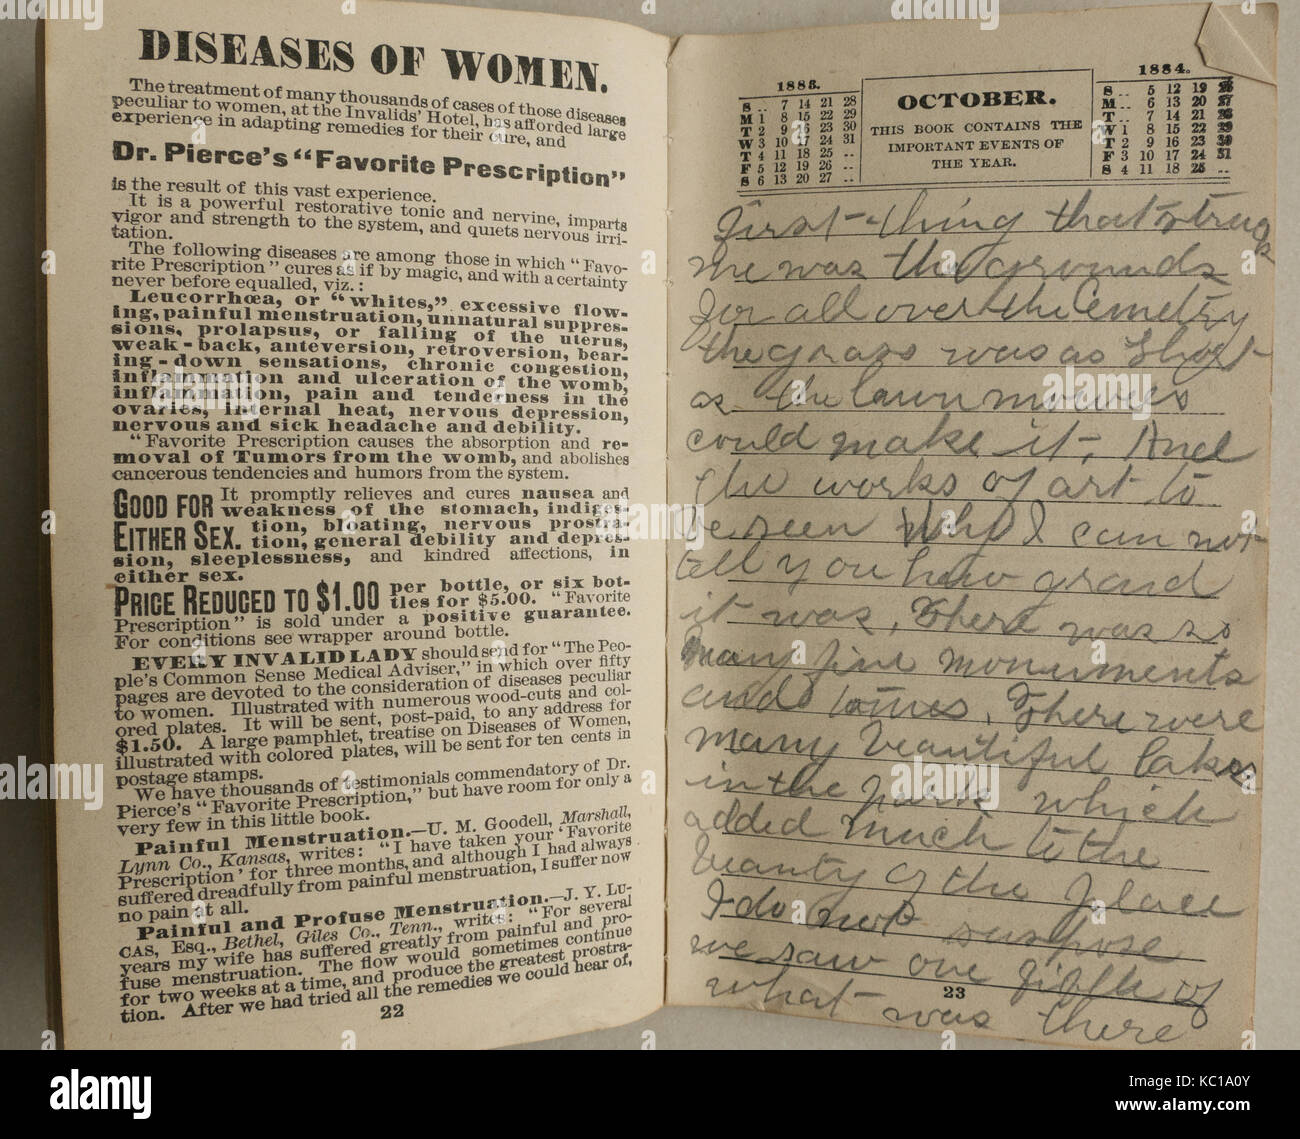 DISEASES OF WOMEN.
The treatment of many thousands of cases of those diseases
peculiar to women, at the Invalids' Hotel, has afforded large
experience in adapting remedies for their cure, and
Dr. Pierce's "Favorite Prescription"
is the result of this vast experience.
It is a powerful restorative tonic and nervine, imparts
vigor and strength to the system, and quiets nervous irri-
tation.
The following diseases are among those in which "Favo-
rite Prescription" cures as if by magic, and with a certainty
never before equalled, viz.:
Leucorrhœa, or "whites," excessive flow-
ing, painful menstruation, unnatural suppres-
sions, prolapsus, or falling of the uterus,
weak-back, anteversion, retroversion, bear-
ing-down sensations, chronic congestion,
inflammation and ulceration of the womb,
inflammation, pain and tenderness in the
ovaries, internal heat, nervous depression,
nervous and sick headache and debility.
"Favorite Prescription causes the absorption and re-
moval of Tumors from the womb, and abolishes
cancerous tendencies and humors from the system.
GOOD FOR EITHER SEX. It promptly relieves and cures nausea and
weakness of the stomach, indiges-
tion, bloating, nervous prostra-
tion, general debility and depres-
sion, sleeplessness, and kindred affections, in
either sex.
PRICE REDUCED TO $1.00 per bottle, or six bot-
tles for $5.00. "Favorite
Prescription" is sold under a positive guarantee.
For conditions see wrapper around bottle.
EVERY INVALID LADY should send for "The Peo-
ple's Common Sense Medical Adviser," in which over fifty
pages are devoted to the consideration of diseases peculiar
to women. Illustrated with numerous wood-cuts and col-
ored plates. It will be sent, post-paid, to any address for
$1.50. A large pamphlet, treatise on Diseases of Women,
illustrated with colored plates, will be sent for ten cents in
postage stamps.
We have thousands of testimonials commendatory of Dr.
Pierce's "Favorite Prescription," but have room for only a
very few in this little book.
Painful Menstruation.—U. M. Goodell, Marshall,
Lynn Co., Kansas, writes: "I have taken your 'Favorite
Prescription' for three months, and although I had always
suffered dreadfully from painful menstruation, I suffer now
no pain at all.
Painful and Profuse Menstruation.—J. Y. LU-
CAS, Esq., Bethel, Giles Co., Tenn., writes: "For several
years my wife has suffered greatly from painful and pro-
fuse menstruation. The flow would sometimes continue
for two weeks at a time, and produce the greatest prostra-
tion. After we had tried all the remedies we could hear of,
22
1883.
S .. 7 14 21 28
M 1 8 15 22 29
T 2 9 16 23 30
W 3 10 17 24 31
T 4 11 18 25 ..
F 5 12 19 26 ..
S 6 13 20 27 ..
OCTOBER.
THIS BOOK CONTAINS THE
IMPORTANT EVENTS OF
THE YEAR.
1884.
S .. 5 12 19 26
M .. 6 13 20 27
T .. 7 14 21 28
W 1 8 15 22 29
T 2 9 16 23 30
F 3 10 17 24 31
S 4 11 18 25 ..
First thing that struck
me was the grounds
for all over the Cemetry
the grass was as Short
as the lawn mowers
could make it, And
the works of art to
be seen Why I can not
tell you how grand
it was. There was so
many fine monuments
and tombs. There were
many beautiful lakes
in the park which
added much to the
beauty of the place
I do not suspose
we saw one fifth of
23
what was there
alamy
Image ID: KC1A0Y
www.alamy.com